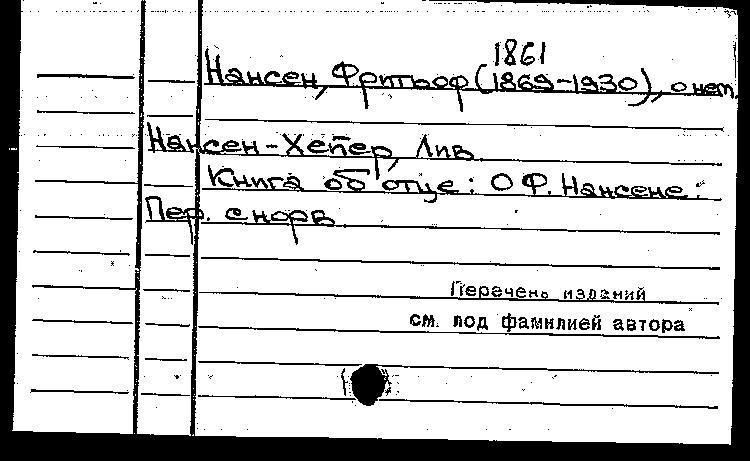 1861
Нансен, Фритьоф (1869-1930), о нем.
Нансен-Хейер, Лив.
Книга об отце: О Ф. Нансене.
Пер. с норв.
Перечень изданий
см. под фамилией автора